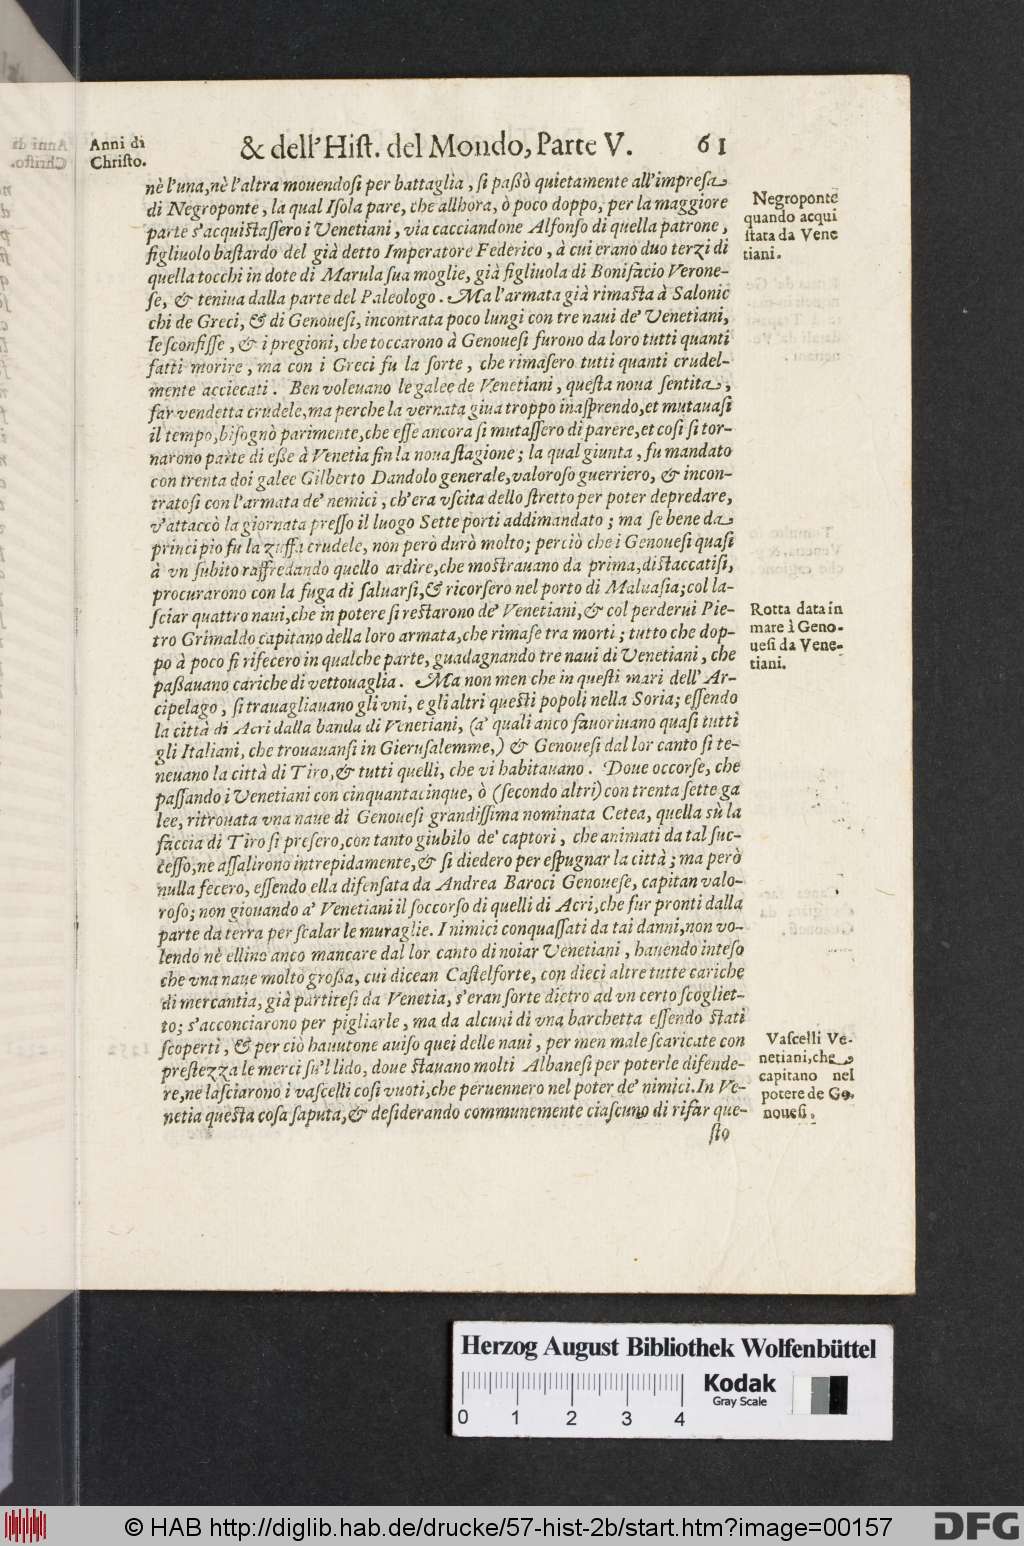 Anni di
Christo.
& dell’Hiſt. del Mondo, Parte V. 61
nè l’una, nè l’altra mouendoſi per battaglia, ſi paßò quietamente all’impreſa
di Negroponte, la qual Iſola pare, che allhora, ò poco doppo, per la maggiore
parte s’acquiſtaſſero i Venetiani, via cacciandone Alfonſo di quella patrone,
figliuolo baſtardo del già detto Imperatore Federico, à cui erano duo terzi di
quella tocchi in dote di Marula ſua moglie, già figliuola di Bonifacio Verone-
ſe, & teniua dalla parte del Paleologo. Ma l’armata già rimaſta à Salonic
chi de Greci, & di Genoueſi, incontrata poco lungi con tre naui de’ Venetiani,
le ſconfiſſe, & i pregioni, che toccarono à Genoueſi furono da loro tutti quanti
fatti morire, ma con i Greci fu la ſorte, che rimaſero tutti quanti crudel-
mente acciecati. Ben voleuano le galee de Venetiani, queſta noua ſentita,
far vendetta crudele, ma perche la vernata giua troppo inaſprendo, et mutauaſi
il tempo, biſognò parimente, che eſſe ancora ſi mutaſſero di parere, et coſi ſi tor-
narono parte di eße à Venetia fin la noua ſtagione; la qual giunta, fu mandato
con trenta doi galee Gilberto Dandolo generale, valoroſo guerriero, & incon-
tratoſi con l’armata de’ nemici, ch’era vſcita dello ſtretto per poter depredare,
v’attaccò la giornata preſſo il luogo Sette porti addimandato; ma ſe bene da
principio fu la zuffa crudele, non però durò molto; perciò che i Genoueſi quaſi
à vn ſubito raffredando quello ardire, che moſtrauano da prima, diſtaccatiſi,
procurarono con la fuga di ſaluarſi, & ricorſero nel porto di Maluaſia; col la-
ſciar quattro naui, che in potere ſi reſtarono de’ Venetiani, & col perderui Pie-
tro Grimaldo capitano della loro armata, che rimaſe tra morti; tutto che dop-
po à poco ſi rifecero in qualche parte, guadagnando tre naui di Venetiani, che
paßauano cariche di vettouaglia. Ma non men che in queſti mari dell’Ar-
cipelago, ſi trauagliauano gli vni, e gli altri queſti popoli nella Soria; eſſendo
la città di Acri dalla banda di Venetiani, (a’ quali anco fauoriuano quaſi tutti
gli Italiani, che trouauanſi in Gieruſalemme,) & Genoueſi dal lor canto ſi te-
neuano la città di Tiro, & tutti quelli, che vi habitauano. Doue occorſe, che
paſſando i Venetiani con cinquantacinque, ò (ſecondo altri) con trenta ſette ga
lee, ritrouata vna naue di Genoueſi grandiſſima nominata Cetea, quella sù la
faccia di Tiro ſi preſero, con tanto giubilo de’ captori, che animati da tal ſuc-
ceſſo, ne aſſalirono intrepidamente, & ſi diedero per eſpugnar la città; ma però
nulla fecero, eſſendo ella difenſata da Andrea Baroci Genoueſe, capitan valo-
roſo; non giouando a’ Venetiani il ſoccorſo di quelli di Acri, che fur pronti dalla
parte da terra per ſcalar le muraglie. I nimici conquaſſati da tai danni, non vo-
lendo nè ellino anco mancare dal lor canto di noiar Venetiani, hauendo inteſo
che vna naue molto großa, cui dicean Caſtelforte, con dieci altre tutte cariche
di mercantia, già partireſi da Venetia, s’eran ſorte dietro ad vn certo ſcogliet-
to; s’acconciarono per pigliarle, ma da alcuni di vna barchetta eſſendo ſtati
ſcoperti, & per ciò hauutone auiſo quei delle naui, per men male ſcaricate con
preſtezza le merci ſu’l lido, doue ſtauano molti Albaneſi per poterle difende-
re, ne laſciarono i vaſcelli coſi vuoti, che peruennero nel poter de’ nimici. In Ve-
netia queſta coſa ſaputa, & deſiderando communemente ciaſcuno di rifar que-
ſto
Negroponte
quando acqui
ſtata da Vene
tiani.
Rotta data in
mare i Geno-
ueſi da Vene-
tiani.
Vaſcelli Ve-
netiani, che
capitano nel
potere de Ge-
noueſi.
Herzog August Bibliothek Wolfenbüttel
Kodak
Gray Scale
0 1 2 3 4
© HAB http://diglib.hab.de/drucke/57-hist-2b/start.htm?image=00157
DFG